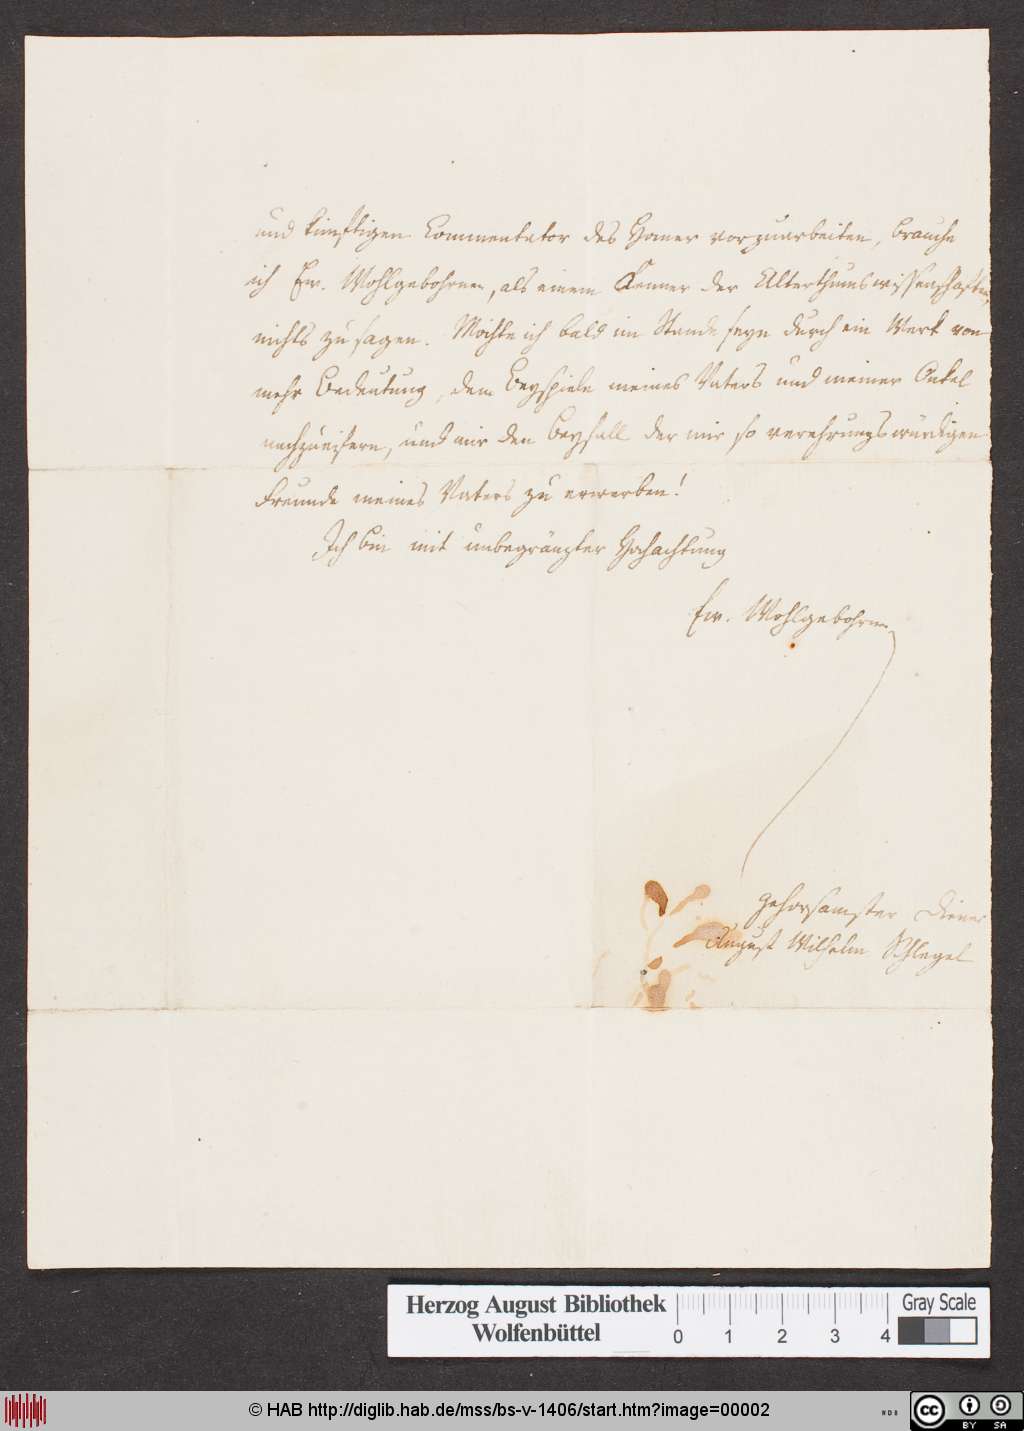 und künftigen Commentator des Homer vorzuarbeiten, brauche
ich Ew. Wohlgebohrnen, als einem Kenner der Alterthumswissenschaften,
nichts zu sagen. Möchte ich bald im Stande seyn durch ein Werk von
mehr Bedeutung, dem Beyspiele meines Vaters und meiner Onkel
nachzueifern, und mir den Beyfall der mir so verehrungswürdigen
Freunde meines Vaters zu erwerben!
Ich bin mit unbegränzter Hochachtung
Ew. Wohlgebohrnen
gehorsamster Diener
August Wilhelm Schlegel
Herzog August Bibliothek
Wolfenbüttel
0 1 2 3 4
Gray Scale
© HAB http://diglib.hab.de/mss/bs-v-1406/start.htm?image=00002
cc BY SA